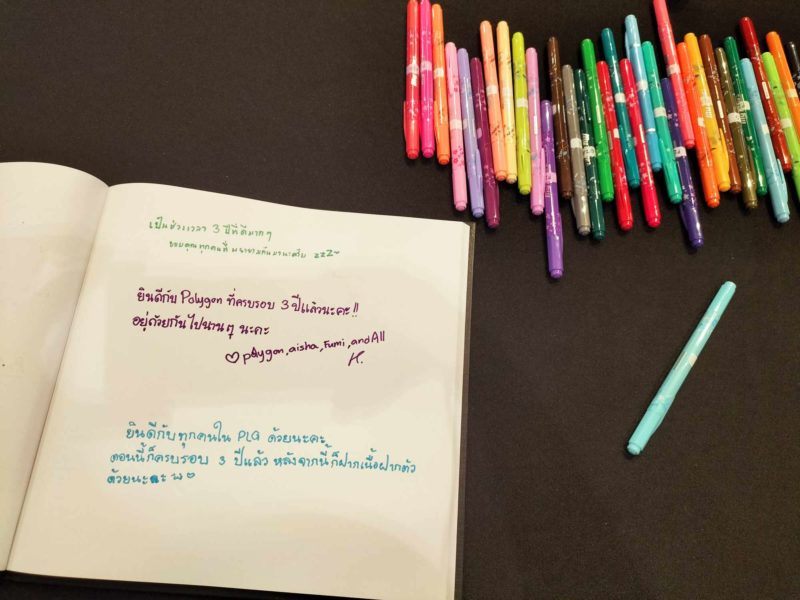 เป็นช่วงเวลา 3 ปีที่ดีมากๆ
ขอบคุณทุกคนที่พยายามกันมานะครับ zzz~
ยินดีกับ Polygon ที่ครบรอบ 3 ปีแล้วนะคะ!!
อยู่ด้วยกันไปนานๆ นะคะ
♡ polygon, aisha, Fumi, and All
K.
ยินดีกับทุกคนใน PLG ด้วยนะคะ
ตอนนี้ก็ครบรอบ 3 ปีแล้ว หลังจากนี้ก็ฝากเนื้อฝากตัว
ด้วยนะคะ